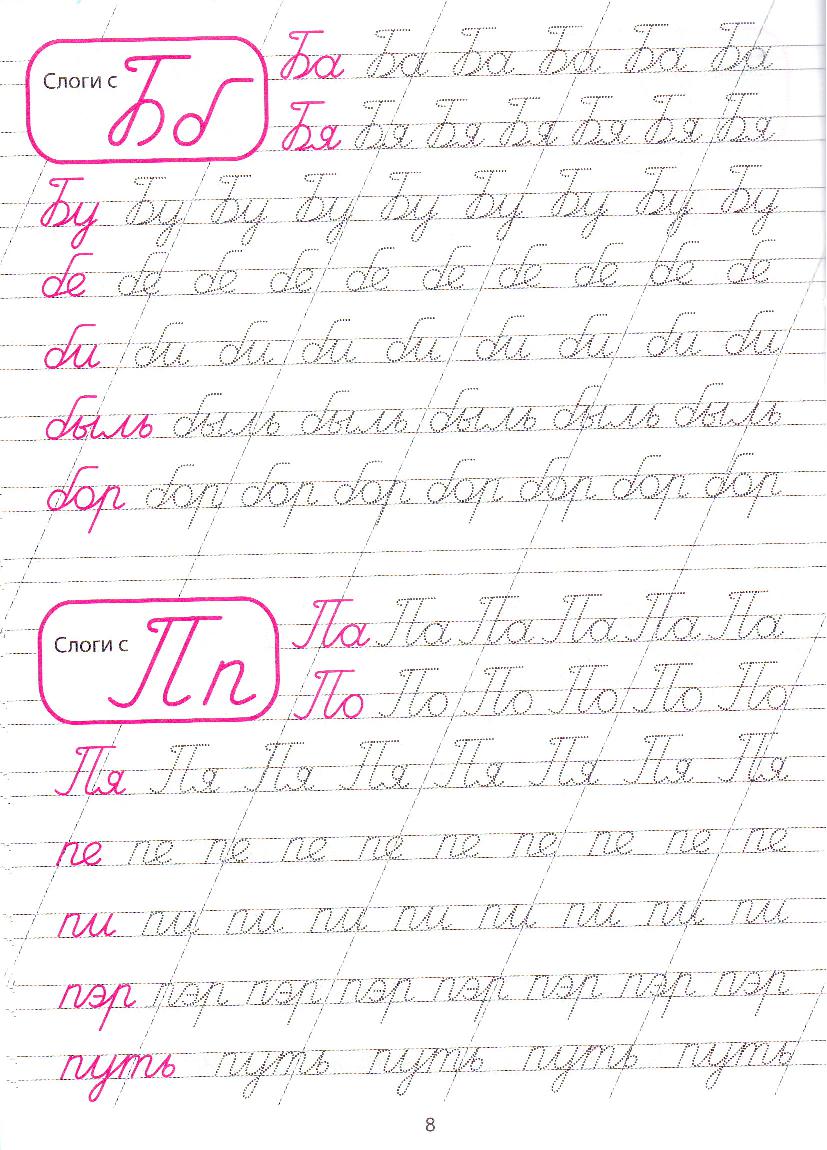 Слоги с Бб
Ба Ба Ба Ба Ба Ба
Бя Бя Бя Бя Бя Бя Бя
Бу Бу Бу Бу Бу Бу Бу Бу Бу
бе бе бе бе бе бе бе бе бе бе
би би би би би би би би би
быль быль быль быль быль быль
бор бор бор бор бор бор бор бор
Слоги с Пп
Па Па Па Па Па Па
По По По По По По
Пя Пя Пя Пя Пя Пя Пя Пя
пе пе пе пе пе пе пе пе пе пе
пи пи пи пи пи пи пи пи пи
пэр пэр пэр пэр пэр пэр пэр пэр
путь путь путь путь путь
8